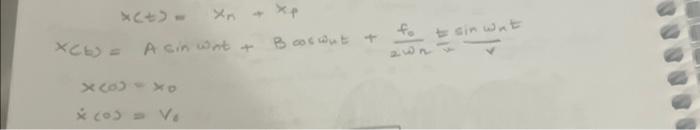 x(t) = xn + xp
x(t) = A sin ωnt + B cos ωnt + f₀/2ωn t sin ωnt
x(0) = x₀
ẋ(0) = V₀